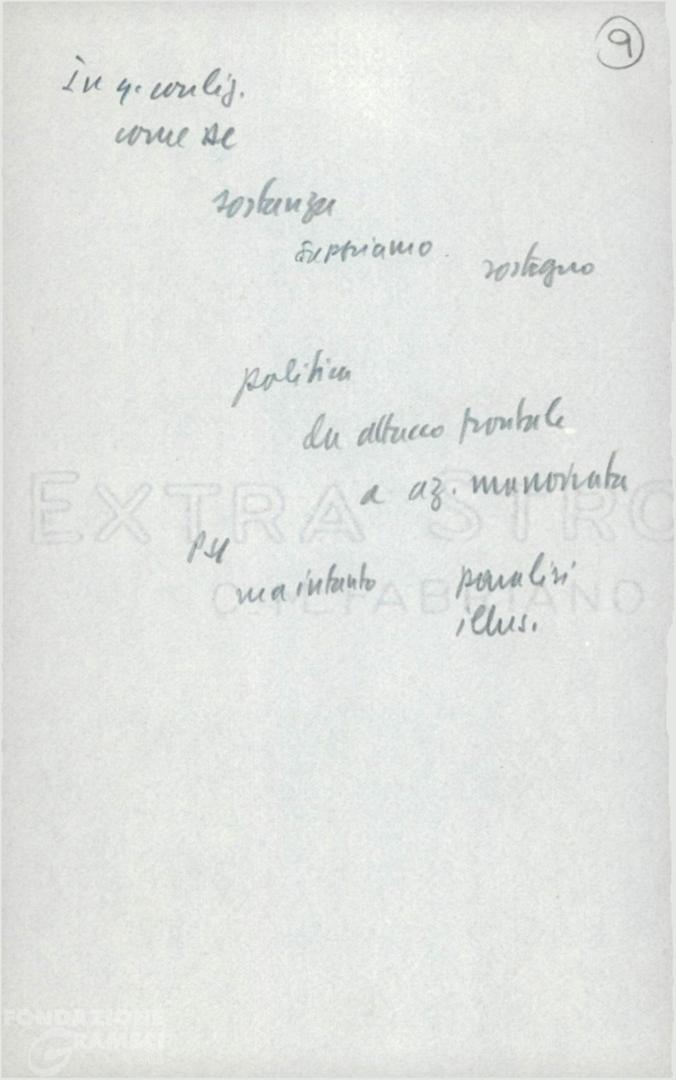 9
In q. conlig.
come se
sostanza
sappiamo sostegno
politica
da attacco frontale
a az. manovrata
EXTRA STRO
PSI
ma intanto paralisi
C.M.FABRIANO
illus.
FONDAZIONE
GRAMSCI